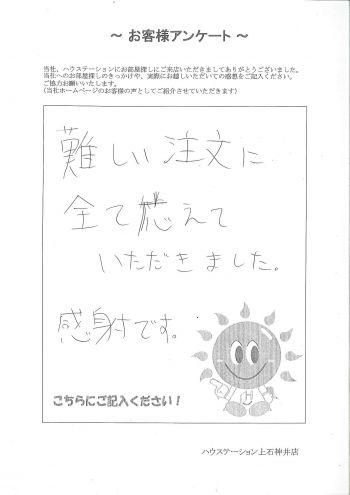 ～ お客様アンケート ～
当社、ハウステーションにお部屋探しにご来店いただきましてありがとうございました。
当社へのお部屋探しのきっかけや、実際にお越しいただいての感想をご記入ください。
ご協力お願いいたします。
(当社ホームページのお客様の声としてご紹介させていただきます)
難しい注文に
全て応えて
いただきました。
感射です。
こちらにご記入ください！
ハウステーション上石神井店